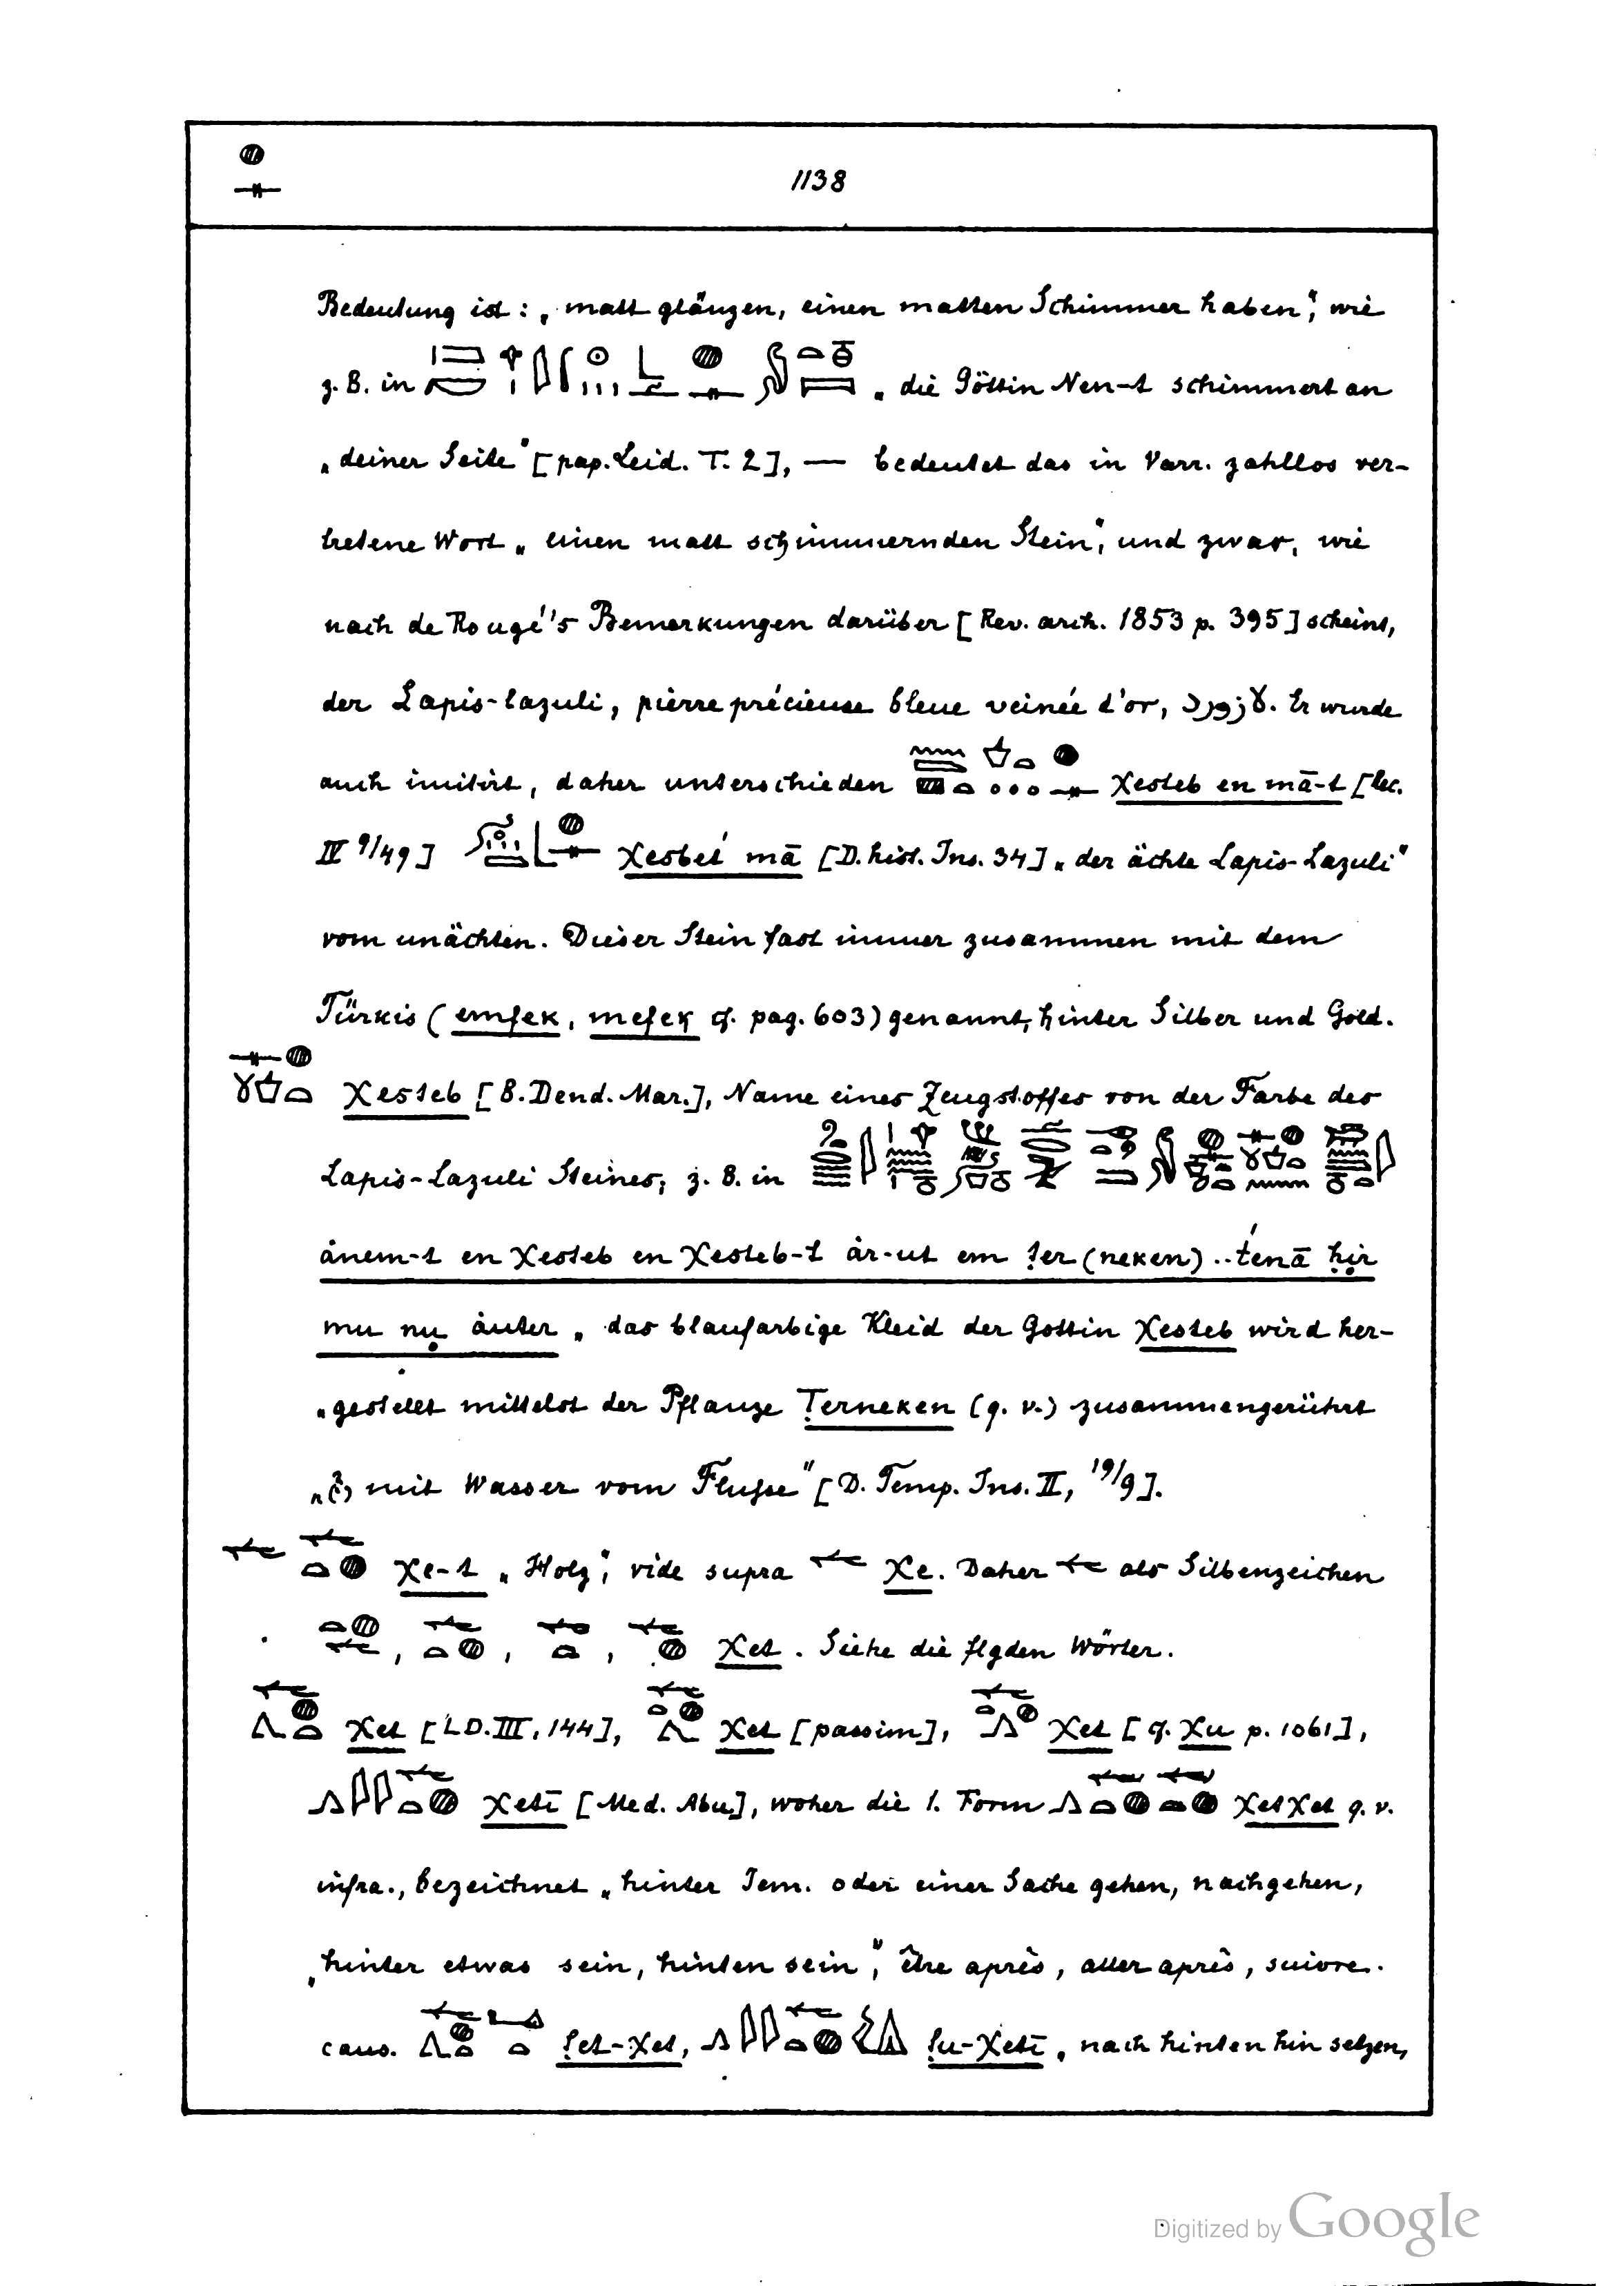 1138
Bedeutung ist: „matt glänzen, einen matten Schimmer haben“, wie
z. B. in „die Göttin Nen-t schimmert an
„deiner Seite“ [pap. Leid. T. 2], — bedeutet das in Varr. zahllos ver-
tretene Wort „einen matt schimmernden Stein“, und zwar, wie
nach de Rougé's Bemerkungen darüber [Rev. arch. 1853 p. 395] scheint,
der Lapis-lazuli, pierre précieuse bleue veinée d'or, لاژورد. Er wurde
auch imitirt, daher unterschieden χesteb en mā-t [Rec.
IV 9/49] χesbet́ mā [D. hist. Ins. 34] „der ächte Lapis-Lazuli“
vom unächten. Dieser Stein fast immer zusammen mit dem
Türkis (emfek, mefek cf. pag. 603) genannt, hinter Silber und Gold.
χesteb [B. Dend. Mar.], Name eines Zeugstoffes von der Farbe des
Lapis-Lazuli Steines, z. B. in
ȧnem-t en χesteb en χesteb-t ȧr-ut em ṭer (neken) .. t́enā ḥir
mu nu ȧuter „das blaufarbige Kleid der Göttin χesteb wird her-
„gestellt mittelst der Pflanze Ṭerneken (q. v.) zusammengerührt
„(?) mit Wasser vom Flusse“ [D. Temp. Ins. II, 19/9].
χe-t „Holz“, vide supra χe. Daher als Silbenzeichen
, , , χet. Siehe die flgden Wörter.
χet [LD. III, 144], χet [passim], χet [cf. χu p. 1061],
χetī [Med. Abu], woher die 1. Form χetχet q. v.
infra., bezeichnet „hinter Jem. oder einer Sache gehen, nachgehen,
„hinter etwas sein, hinten sein“, être après, aller après, suivre.
caus. ṭet-χet, ṭu-χetī „nach hinten hin setzen,
Digitized by Google